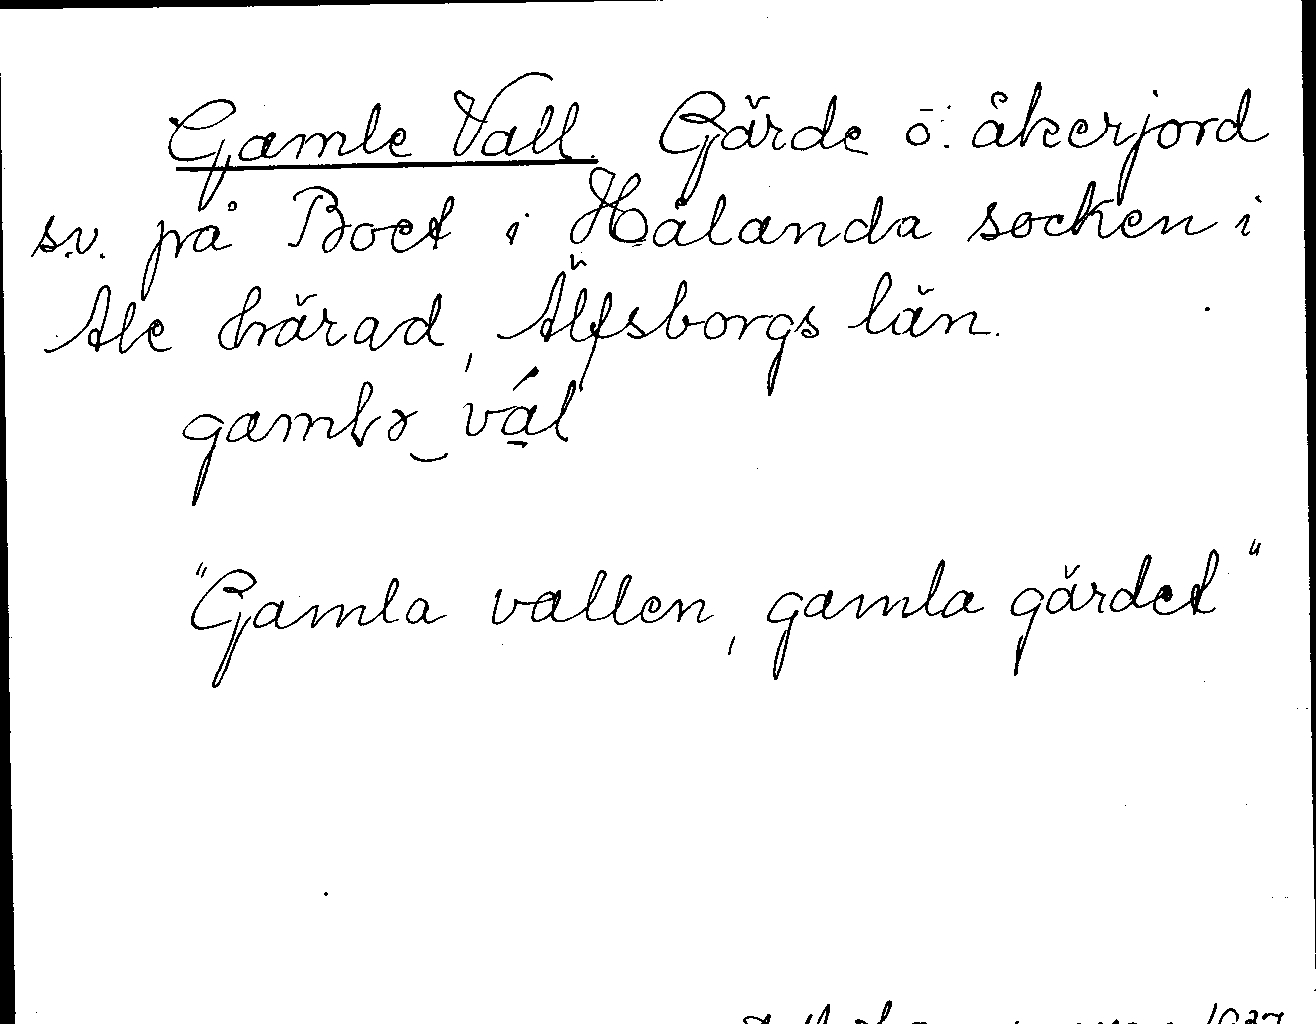 Gamle Vall. Gärde o. åkerjord
s.v. på Boet i Hålanda socken i
Ale härad, Älfsborgs län.
gamlə‿vál
"Gamla vallen, gamla gärdet"
1937